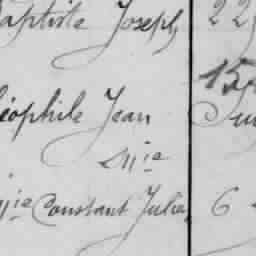 Baptiste Joseph 22
15
éophile Jean
Mie
Mie Constant Jules 6